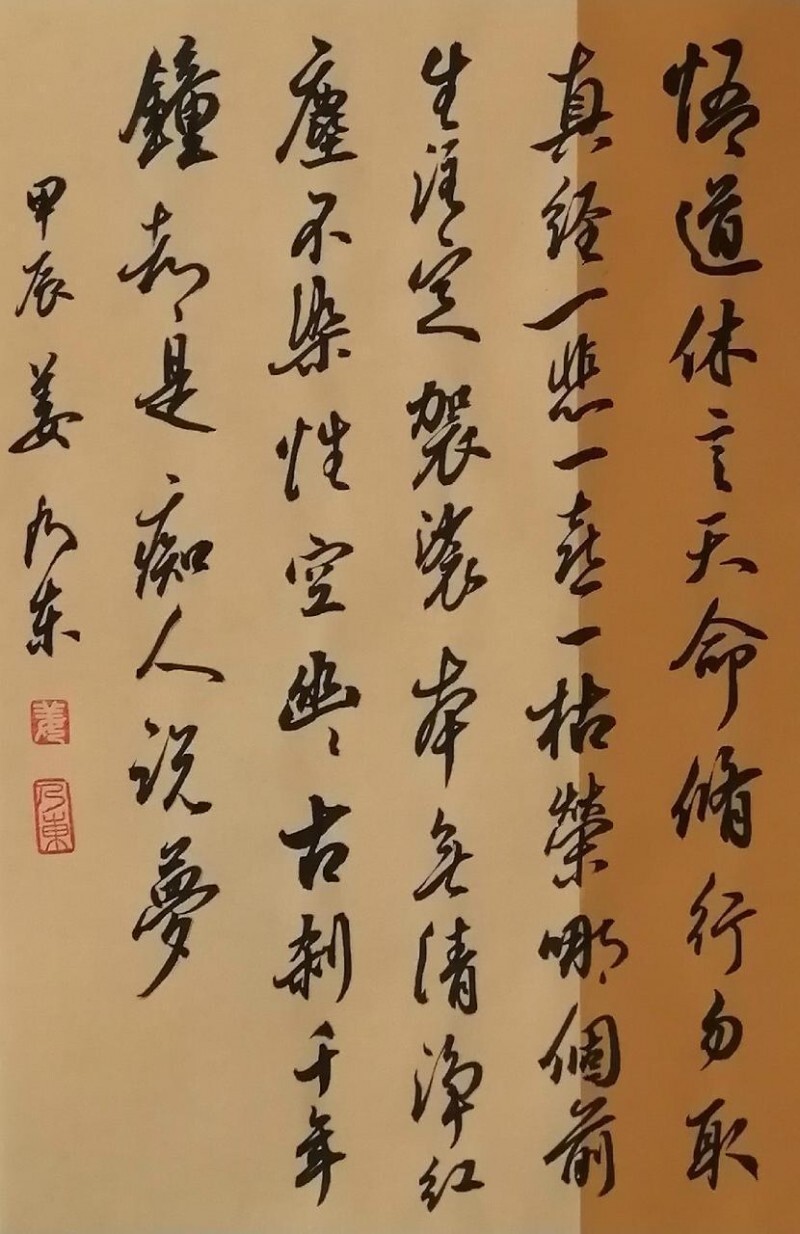 悟道休言天命脩行勿取
真经一悲一喜一枯榮哪個前
生注定袈裟本无清净红
塵不染性空幽幽古刹千年
鐘却是痴人说夢
甲辰姜乃东
姜
乃東